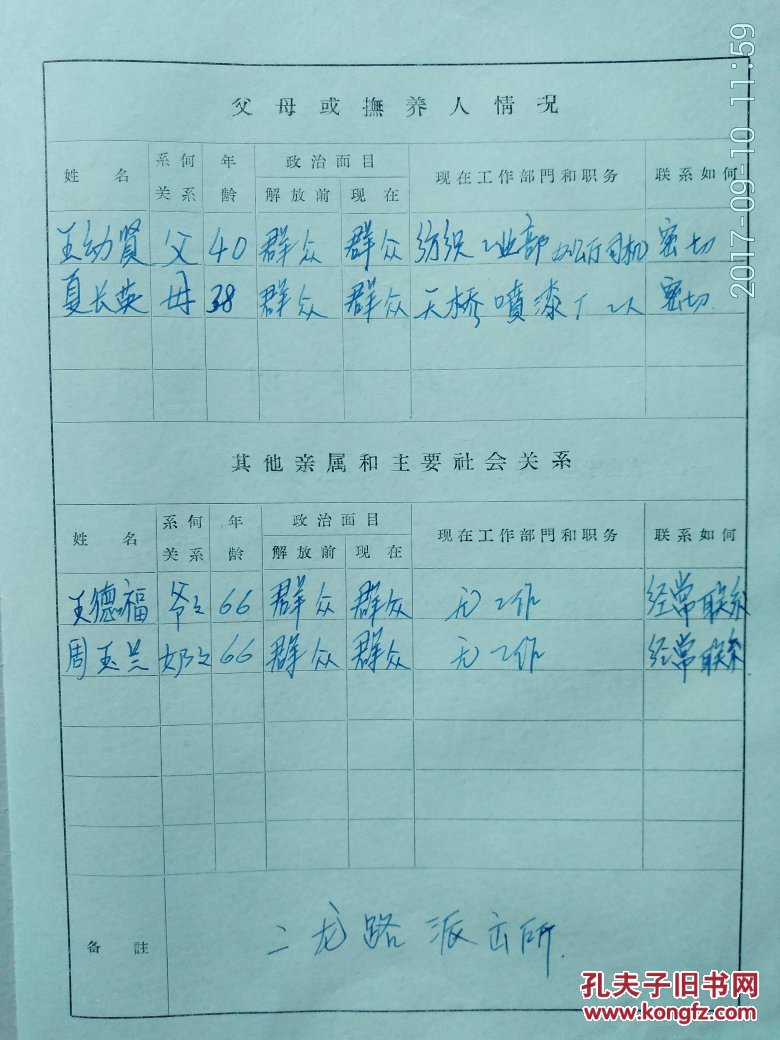 父母或撫养人情况
姓名 系何关系 年龄 政治面目 解放前 现在 现在工作部門和职务 联系如何
王幼贤 父 40 群众 群众 纺织工业部办公厅司机 密切
夏长英 母 38 群众 群众 天桥喷漆厂工人 密切
其他亲属和主要社会关系
姓名 系何关系 年龄 政治面目 解放前 现在 现在工作部門和职务 联系如何
王德福 爷々 66 群众 群众 无工作 经常联系
周玉兰 奶々 66 群众 群众 无工作 经常联系
备註 二龙路派出所.
2017-09-10 11:59
孔夫子旧书网
www.kongfz.com